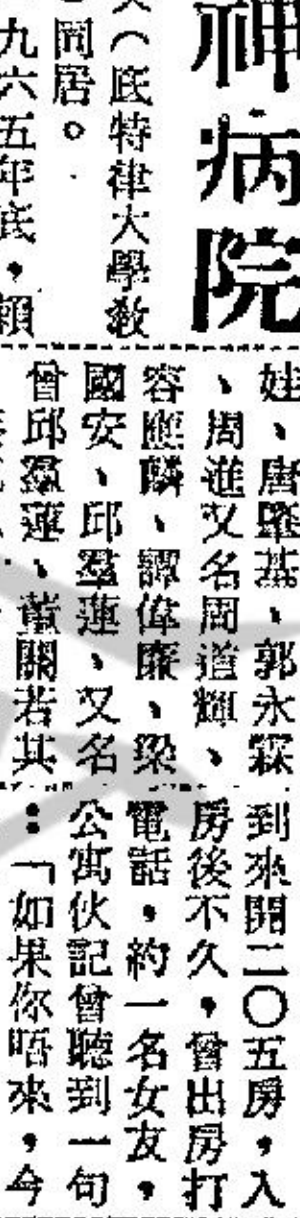 神病院
（底特律大學教
同居。
九六五年底，賴
娃、唐肇基、郭永霖
、周進又名周道輝、
容應麟、譚偉廉、梁
國安、邱羣蓮、又名
曾邱羣蓮、董關若其
到來開二〇五房，入
房後不久，曾出房打
電話，約一名女友，
公寓伙記曾聽到一句
：「如果你唔來，今